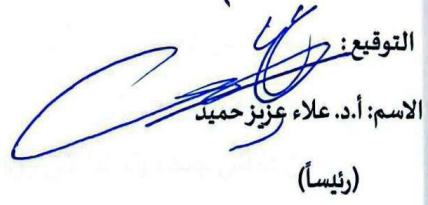 التوقيع:
الاسم: أ.د. علاء عزيز حميد
(رئيساً)